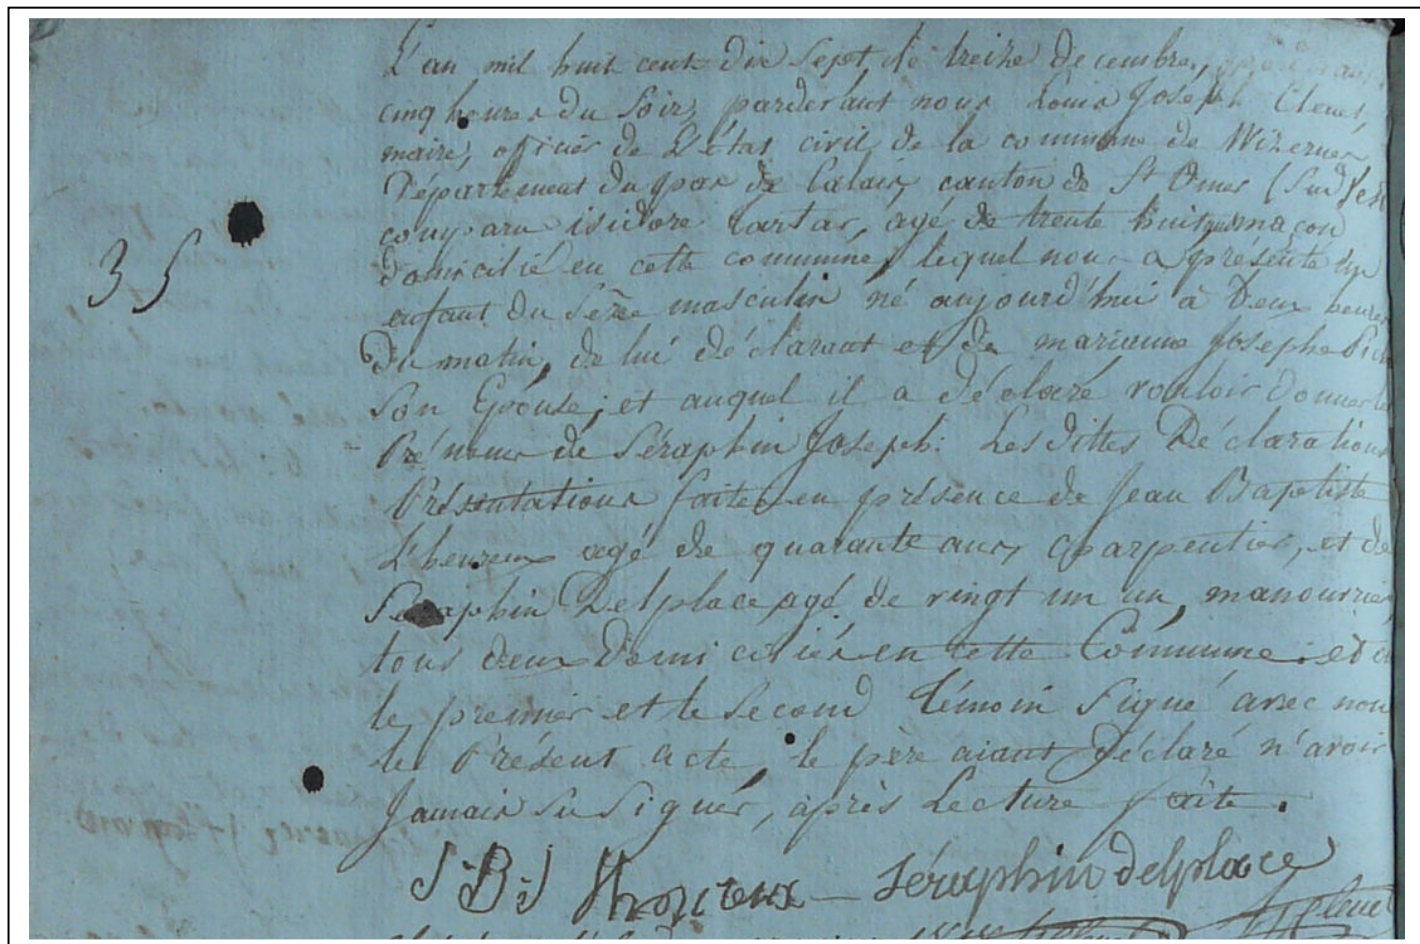 L'an mil huit cent dix sept, le treize decembre,
cinq heures du soir, pardevant nous Louis Joseph Clenet,
maire, officier de L'état civil de la commune de Wizernes
Département du pas de Calais, canton de St Omer (Sud)
comparu isidore Cartar, agé de trente huit ans maçon
domicilié en cette commune, lequel nous a présenté un
enfant du Sexe masculin né aujourd'hui à Deux heures
du matin, de lui déclarant et de marianne Josephe
Son Epouse; et auquel il a déclaré vouloir donner les
Prénoms de Séraphin Joseph: Lesdittes Déclarations
Présentations faites en présence de Jean Baptiste
L'heureux agé de quarante ans, charpentier, et de
Séraphin Delplace agé de vingt un an, manouvrier,
tous deux Domiciliés en cette Commune: et
le premier et le second témoin Signé avec nous
le Présent acte, le père aiant Déclaré n'avoir
Jamais su Signer, après Lecture faite.
35
J.B.J Lheureux séraphin delplace
Clenet